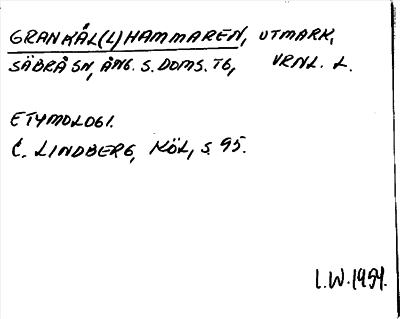 GRANKÅL(L)HAMMAREN, UTMARK,
SÄBRÅ SN, ÅNG. S. DOMS. TG, VRNL. L.
ETYMOLOGI.
C. LINDBERG, KÖL, S. 95.
I.W. 1954.